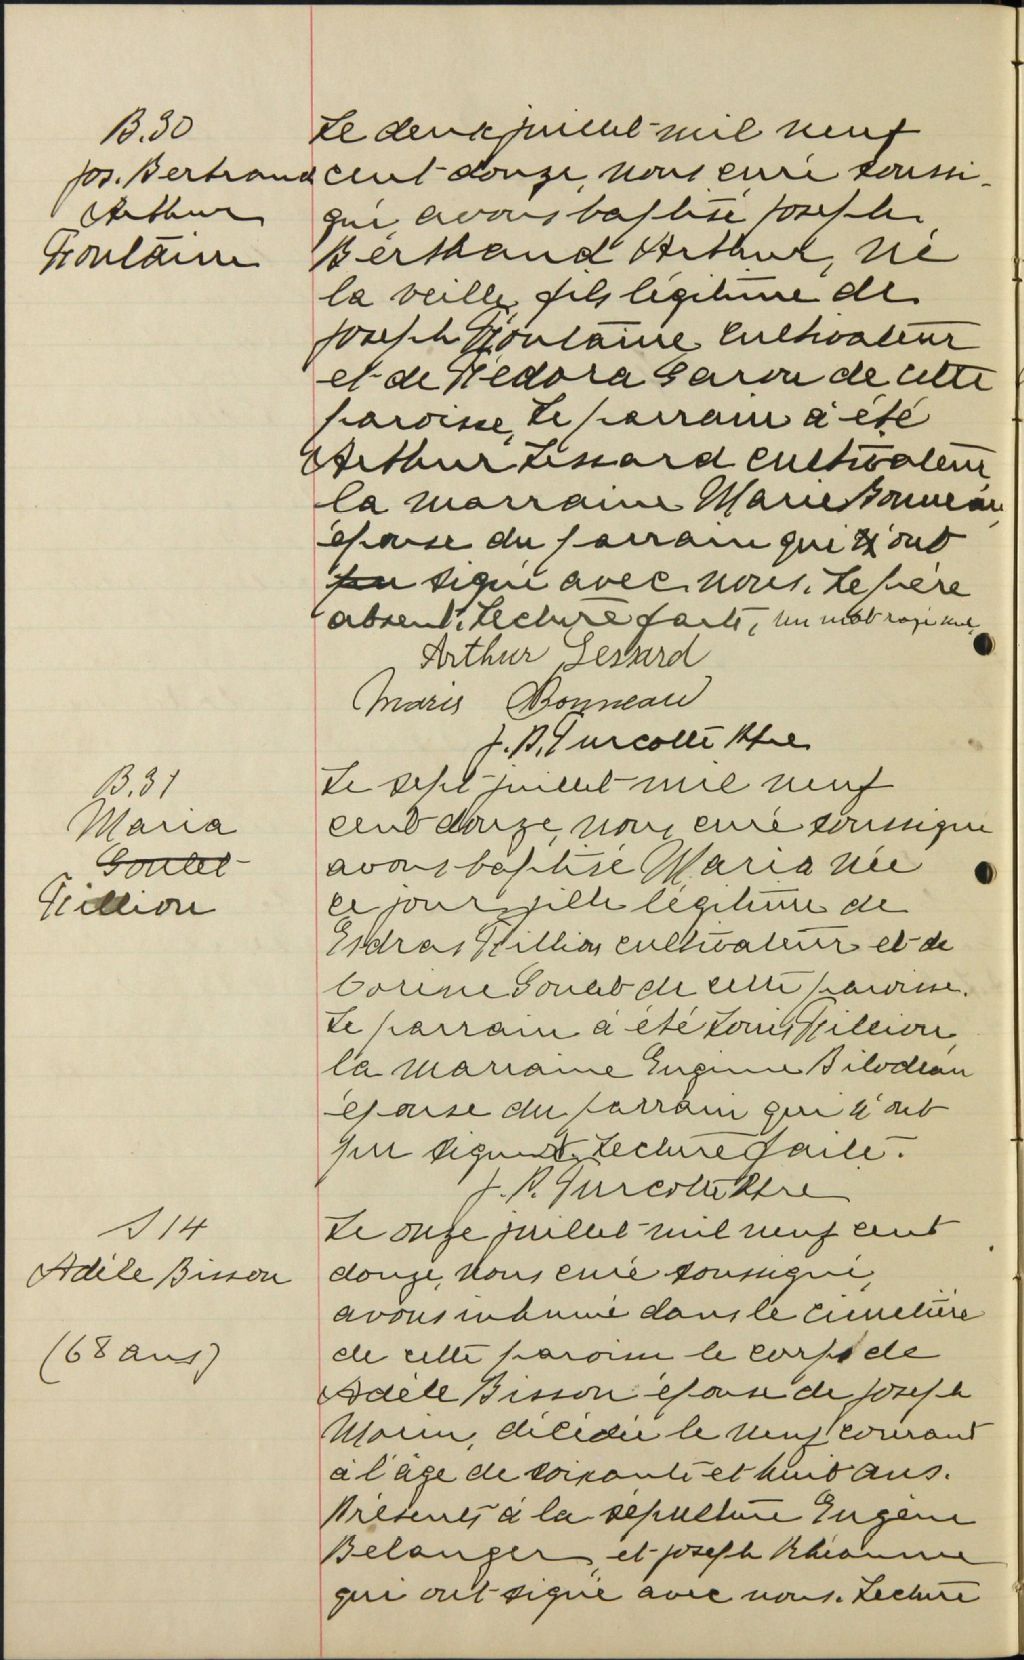 B.30
Jos. Bertrand
Arthur
Fontaine
Le deux juillet mil neuf
cent douze, nous curé soussi-
gné, avons baptisé Joseph
Bertrand Arthur, né
la veille, fils légitime de
Joseph Fontaine cultivateur
et de Fédora Garon de cette
paroisse, Le parrain a été
Arthur Lessard cultivateur
la marraine Marie Bonneau,
épouse du parrain qui ont
pu signé avec nous. Le père
absent. Lecture faite, un mot rayé nul,
Arthur Lessard
Marie Bonneau
J. P. Turcotte Ptre
B.31
Maria
Goulet
Fillion
Le sept juillet mil neuf
cent douze, nous curé soussigné
avons baptisé Maria née
ce jour, fille légitime de
Esdras Fillion cultivateur et de
Corine Goulet de cette paroisse.
Le parrain a été Louis Fillion,
la marraine Eugénie Bilodeau
épouse du parrain qui n'ont
pu signer. Lecture faite.
J. P. Turcotte Ptre
S 14
Adèle Bisson
(68 ans)
Le onze juillet mil neuf cent
douze, nous curé soussigné,
avons inhumé dans le cimetière
de cette paroisse le corps de
Adèle Bisson épouse de Joseph
Morin, décédée le neuf courant
à l'âge de soixante et huit ans.
Présents à la sépulture Eugène
Belanger, et Joseph Rhéaume
qui ont signé avec nous. Lecture